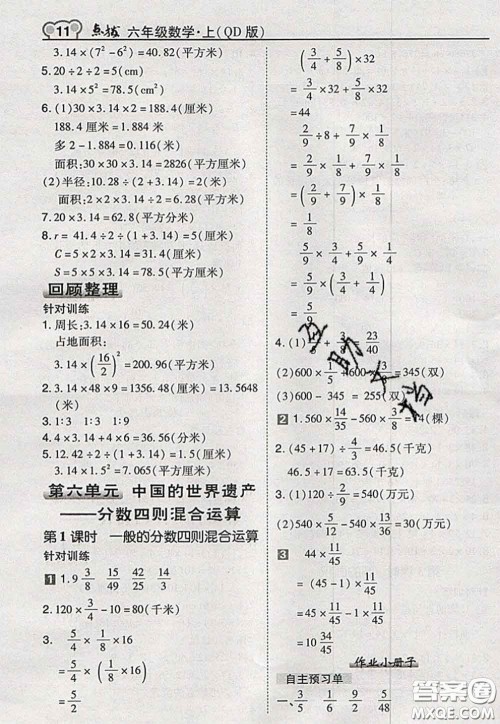 11 点拨 六年级数学·上(QD版)
3.14×(7²-6²)=40.82(平方米)
5.20÷2÷2=5(cm)
3.14×5²=78.5(cm²)
6.(1)30×2×3.14=188.4(厘米)
188.4厘米=1.884(米)
多2-1.884=0.116(米)
面积:30×30×3.14=2826(平方厘米)
(2)半径:12.56÷3.14÷2=2(米)
面积2×2×3.14=12.56(平方米)
7.20×3.14=62.8(平方分米)
8.r=41.4÷2÷(1+3.14)=5(厘米)
C=5×2×3.14=31.4(厘米)
S=5×5×3.14=78.5(平方厘米)
回顾整理
针对训练
1.周长:3.14×16=50.24(米)
占地面积:
3.14×(16/2)²=200.96(平方米)
2.3.14×48×9=1356.48(厘米)=13.5648(米)
3.1:3 1:3 1:9
4.4×3.14+3×3.14=21.98(米)
5.3.14×1.5²=7.065≈7(平方米)
第六单元 中国的世界遗产
——分数四则混合运算
第1课时 一般的分数四则混合运算
针对训练
1 1.9 3/8 15/49 42/25 3/4
2.120×3/4-10=80(米)
3. 3/4×5/8+1/2×16
=5/8×1/2×16
=5
3/4×32+5/8×32
=(3/4+5/8)×32
=44
2/9÷8+7/9×1/8
=2/9×1/8+7/9×1/8
=(2/9+7/9)×1/8
=1/8
5/9×3/4+5/9×1/4
=5/9×(3/4+1/4)
=5/9
4.(1)1/5+3/8=23/40
(2)600×1/5+600×3/8=345(双)
(3)600-345=255(双)
2 1.560×14/35-560×3/8=14(棵)
2.(1)(45+17)×3/4=46.5(千克)
46.5千克=46.5(千克)
(2)(450-10)×1/2=220(米)
3 44×11/45
=(45-1)×11/45
=45×11/45-11/45
=10 34/45
作业小册子
自主预习单
一、3/5 1/6 9/2 5/48
互助文摘
答案圈
MXQE.COM